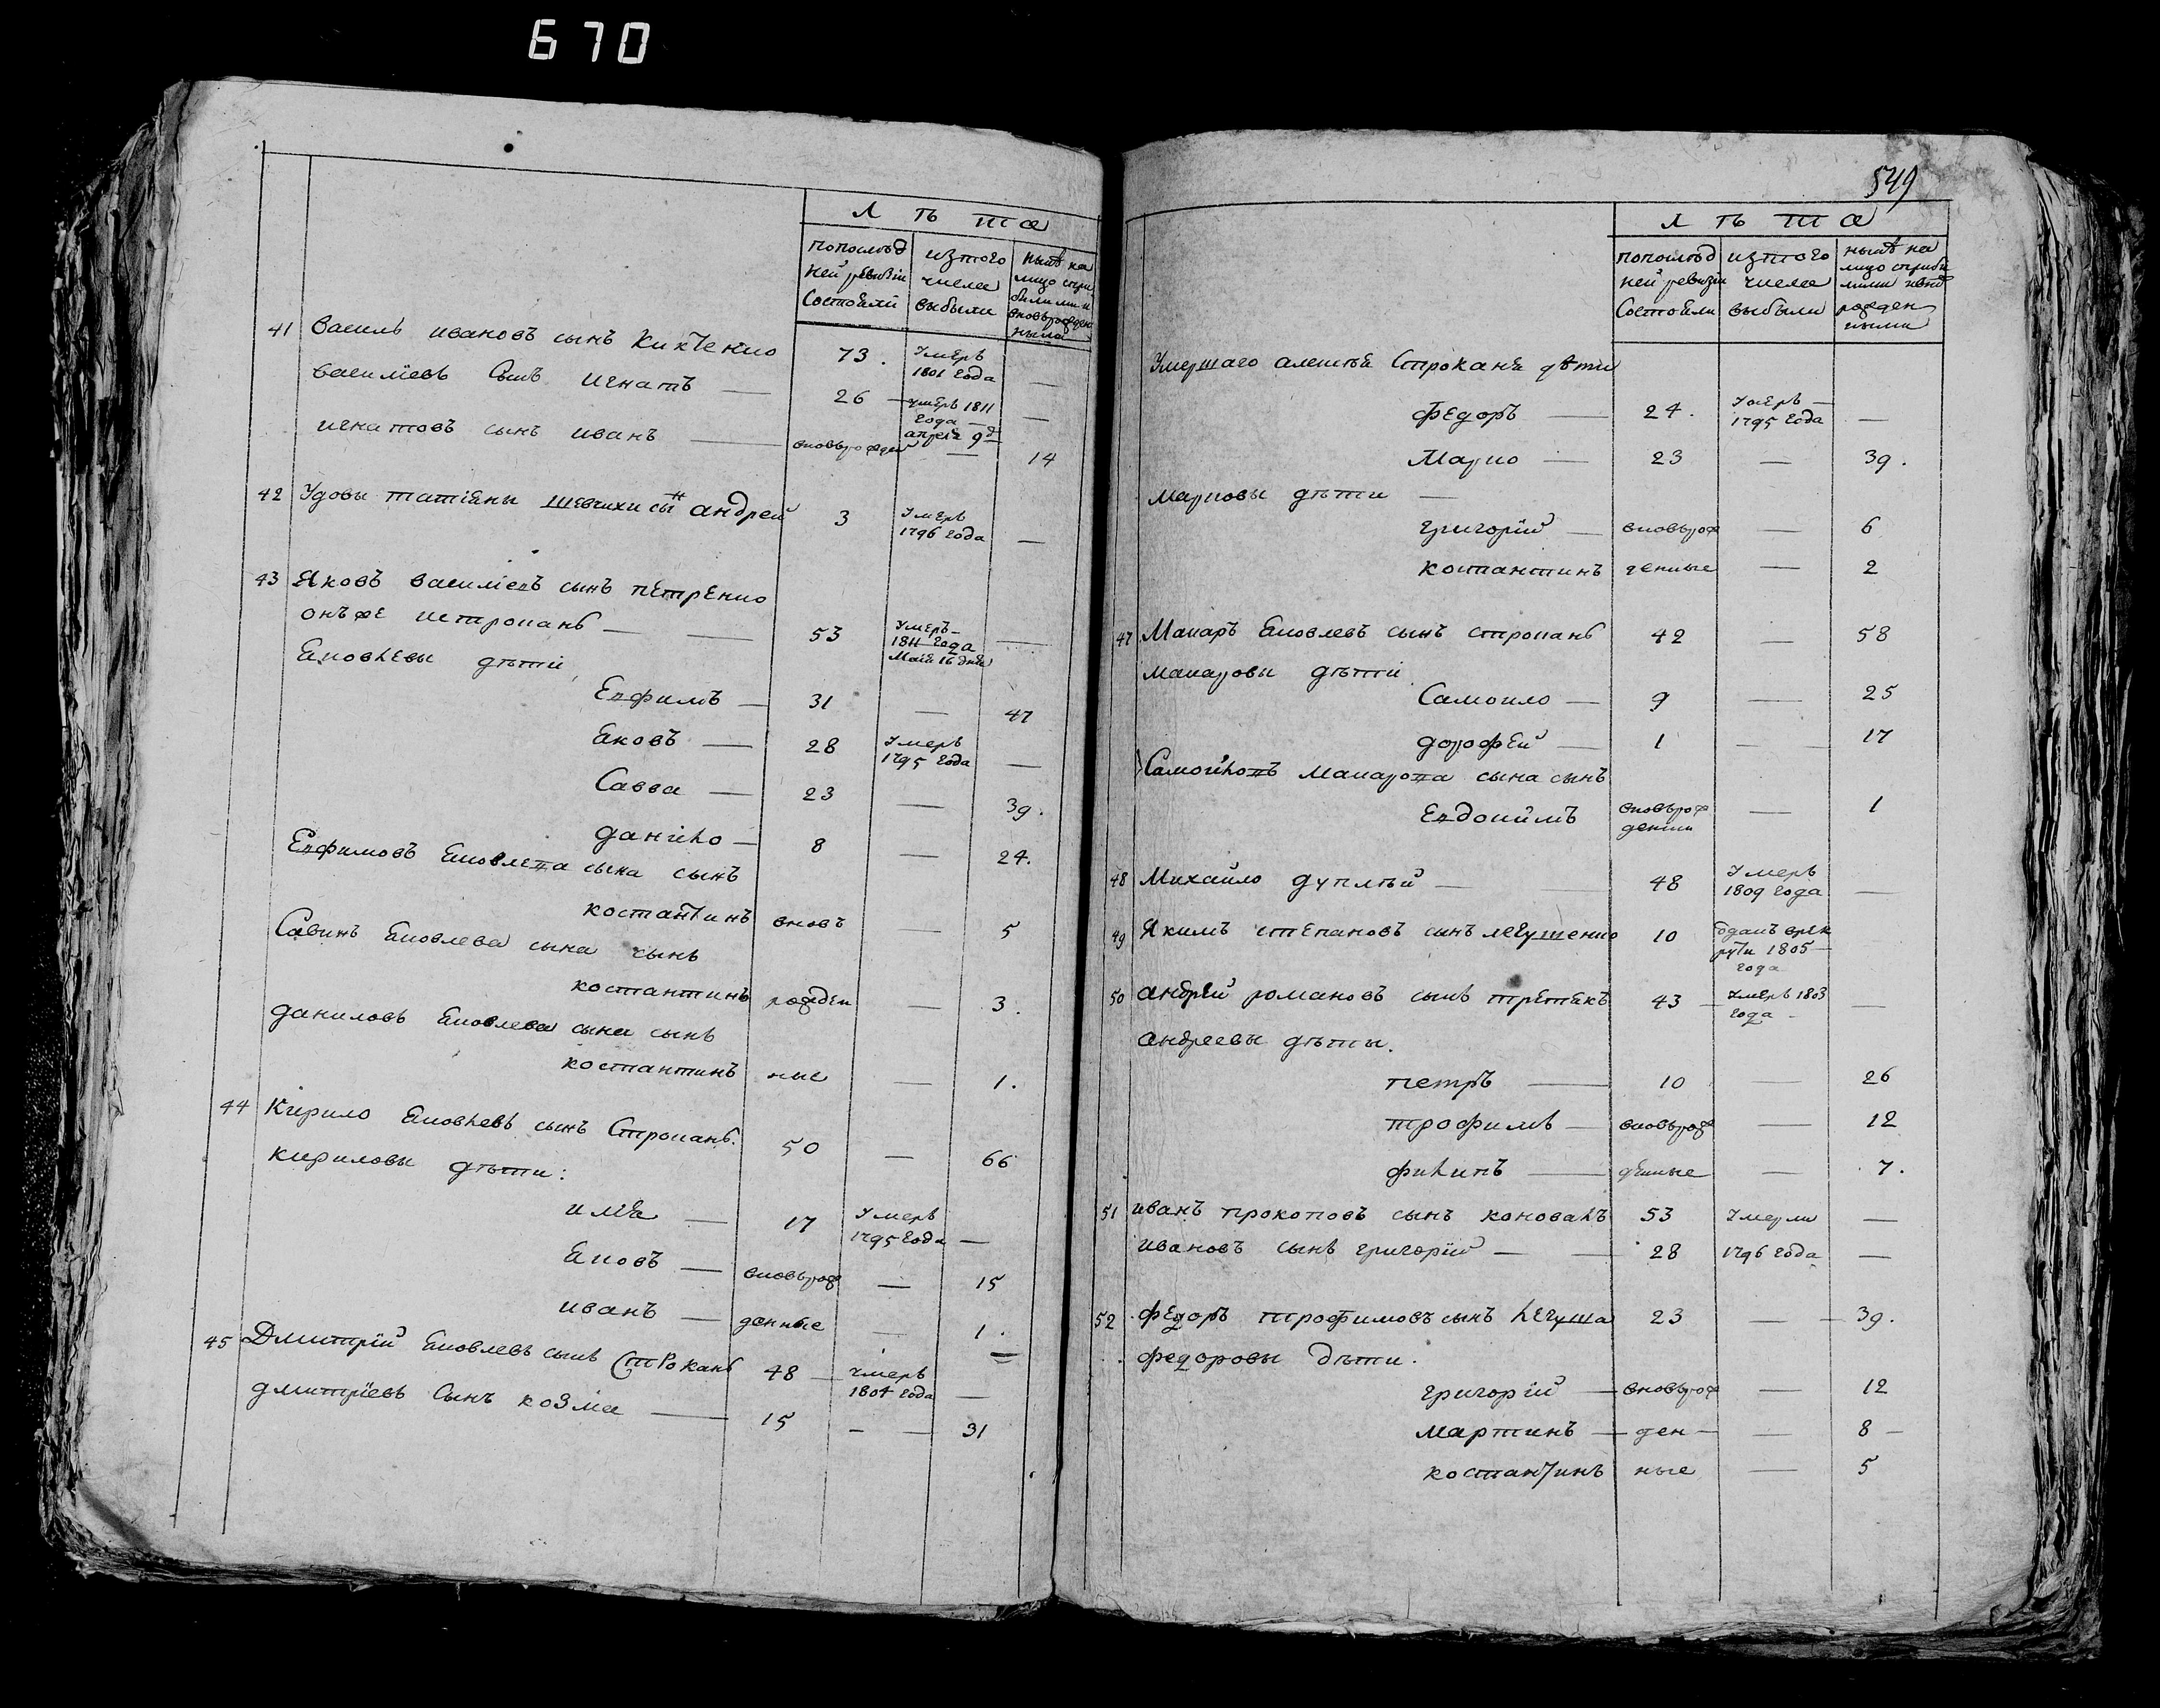 670
Л ѣ та
попослѣд ней ревизіи состояли | изтого числа выбыли | нынѣ на лицо спри былыми и вновьрожден ными
41 Василь ивановъ сынъ Кикченко 73. умеръ 1801 года —
василіевъ сынъ игнатъ — 26 — умеръ 1811 года — апреля 9 д —
игнатовъ сынъ иванъ — вновьрожден — 14
42 Удовы татіяны шевчихи сынъ андрей 3 умеръ 1796 года —
43 Яковъ василіевъ сынъ петренко
онъ же истрокань — — 53 умеръ — 1811 года Маія 16 дня —
Яковлевы дѣти
Евфимъ — 31 — 47
Яковъ — 28 умеръ 1795 года —
Савва — 23 — 39.
данило — 8 — 24.
Евфимовъ Яковлева сына сынъ
костантинъ вновь — 5
Савинъ Яковлева сына сынъ
костантинъ рожден — 3.
даниловъ Яковлева сына сынъ
костантинъ ные — 1.
44 Кирило Яковлевъ сынъ Строкань. 50 — 66
кириловы дѣти:
илія — 17 умеръ 1795 года —
Яковъ — вновьрож — 15
иванъ — денные — 1.
45 Дмитрій Яковлевъ сынъ Строкань 48 — умеръ 1804 года —
дмитріевъ сынъ козма — 15 — — 31
549
Л ѣ та
попослѣд ней ревизіи состояли | изтого числа выбыли | нынѣ на лицо сприбы лыми ивно рожден ными
Умершаго алексѣя Строканя дѣти
Федоръ — 24. умеръ — 1795 года —
Марко — 23 — 39.
марковы дѣти —
григорій — вновьрож — 6
костантинъ денные — 2
47 Макаръ Яковлевъ сынъ строкань 42 — 58
макаровы дѣти
Самоило — 9 — 25
дорофей — 1 — 17
Самойловъ Макарова сына сынъ
Евдокимъ вновьрож денни — 1
48 Михайло дуплѣй — 48 умеръ 1809 года —
49 Якимъ степановъ сынъ легушенко 10 одданъ врек рути 1805 — года
50 андрей романовъ сынъ третякъ 43 — умеръ 1803 года — —
андреевы дѣты.
петръ — 10 — 26
трофимъ — вновьрож — 12
филипъ — денные — 7.
51 иванъ прокоповъ сынъ коновалъ 53 умерли —
ивановъ сынъ григорій — — 28 1796 года —
52 федоръ трофимовъ сынъ легуша 23 — — 39.
федоровы дѣти.
григорій — вновьрож — 12
мартинъ — ден — — 8 —
костантинъ ные — 5